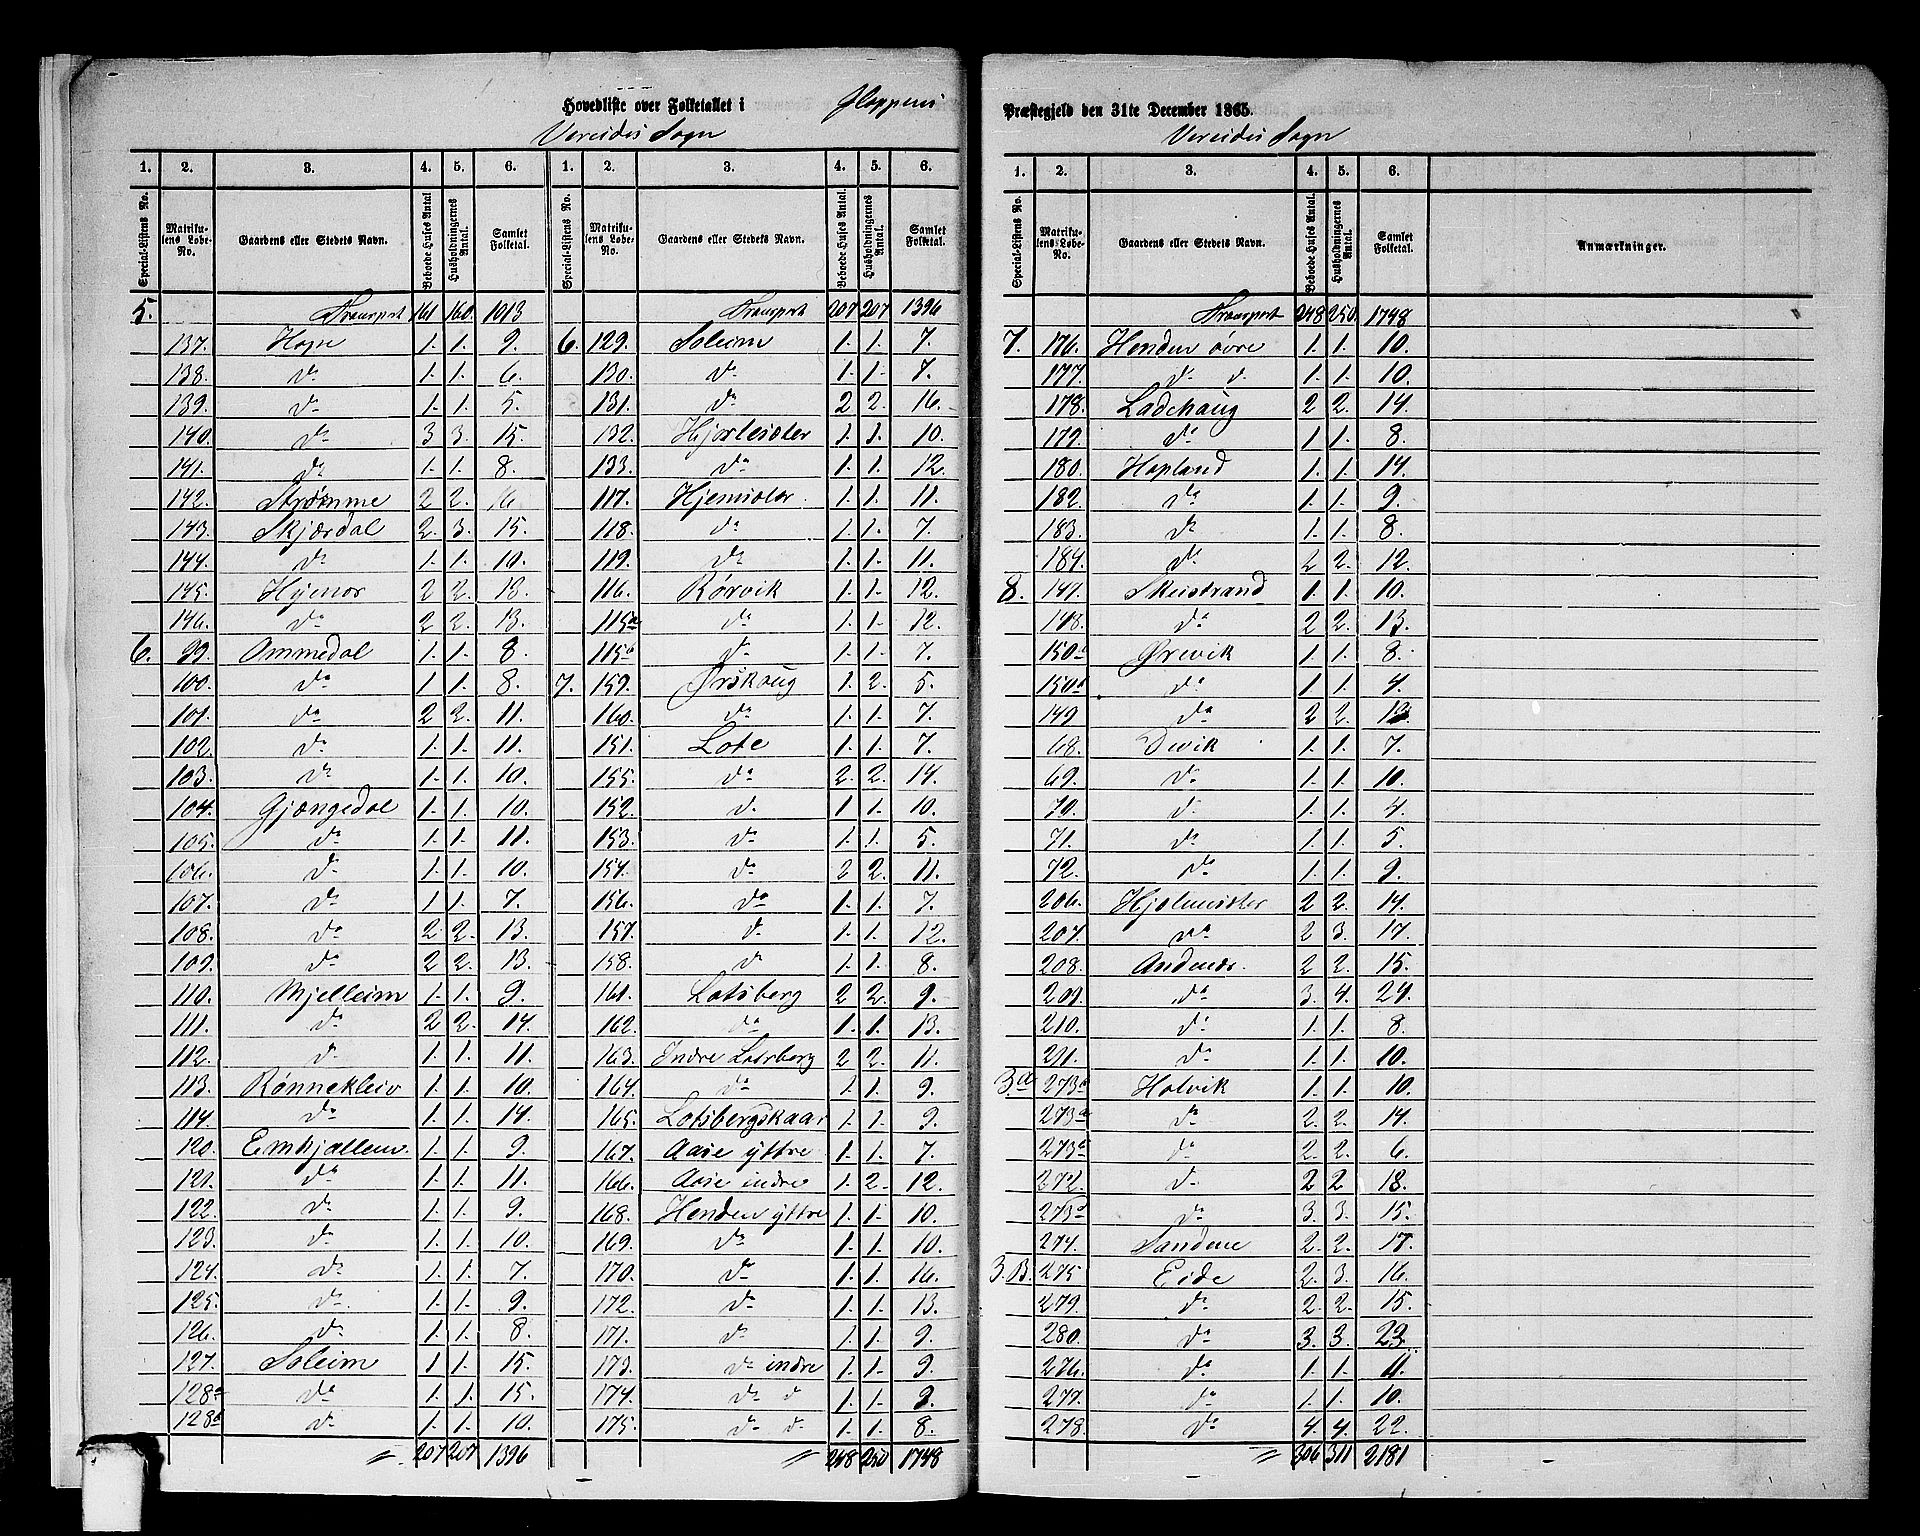 Hovedliste over Folketallet i Gloppens Præstegjeld den 31te December 1865.
Vereides Sogn
Vereides Sogn
1. 2. 3. 4. 5. 6. 1. 2. 3. 4. 5. 6.
Special-Listens No. Matrikulens Løbe-No. Gaardens eller Stedets Navn. Beboede Huses Antal. Husholdningernes Antal. Samlet Folketal. Special-Listens No. Matrikulens Løbe-No. Gaardens eller Stedets Navn. Beboede Huses Antal. Husholdningernes Antal. Samlet Folketal.
5. Transport 161 160. 1013
137. Hope 1. 1. 9.
138. do 1. 1. 6.
139. do 1. 1. 5.
140. do 3 3. 15.
141. do 1. 1. 8.
142. Strømme 2 2. 16.
143. Skjærdal 2. 3. 15.
144. do 1. 1. 10.
145. Hyenør 2 2. 13.
146. do 2 2. 13.
6. 99. Ommedal 1. 1. 8.
100. do 1 1. 8.
101. do 2 2. 11.
102. do 1. 1. 11.
103. do 1. 1. 10.
104. Gjengedal 1. 1. 10.
105. do 1. 1. 11.
106. do 1. 1. 10.
107. do 1. 1. 7.
108. do 2. 2. 13.
109. do 2 2. 13.
110. Mjelleim 1. 1. 9.
111. do 2 2. 14.
112. do 1. 1. 11.
113. Rønnekleiv 1. 1. 10.
114. do 1. 1. 14.
120. Emhjellen 1. 1. 9.
121. do 1. 1. 11.
122. do 1. 1. 9.
123. do 1. 1. 10.
124. do 1. 1. 7.
125. do 1. 1. 9.
126. do 1. 1. 8.
127. Soleim 1 1. 15.
128a do 1. 1. 15.
128b do 1. 1. 10.
207 207 1396
Transport 207 207 1396
6. 129. Soleim 1. 1. 7.
130. do 1. 1. 7.
131. do 2 2. 16.
132. Hjorteseter 1. 1. 10.
133. do 1. 1. 12.
117. Hjemseter 1. 1. 11.
118. do 1. 1. 7.
119. do 1. 1. 11.
116. Rørvik 1. 1. 12.
115a do 1. 1. 12.
115b do 1. 1. 7.
7. 159. Ørskaug 1. 2. 5.
160. do 1. 1. 7.
151. Lote 1. 1. 7.
155. do 2. 2. 14.
152. do 1 1. 10.
153. do 1. 1. 5.
154. do 2 2. 11.
156. do 1. 1. 7.
157. do 1. 1. 12.
158. do 1. 1. 8.
161. Lotsberg 2 2. 9.
162. do 1. 1. 13.
163. Indre Lotsberg 2 2. 11.
164. do 1. 1. 9.
165. Lotsbergskaar 1. 1. 9.
167. Aase yttre 1. 1. 7.
166. Aase indre 1. 2. 12.
168. Henden yttre 1. 1. 10.
169. do 1. 1. 10.
170. do 1. 1. 16.
172. do 1. 1. 13.
171. do 1. 1. 9.
173. do indre 1. 1. 9.
174. do d 1. 1. 9.
175. do d. 1. 1. 8.
248 250 1748
1. 2. 3. 4. 5. 6.
Special-Listens No. Matrikulens Løbe-No. Gaardens eller Stedets Navn. Beboede Huses Antal. Husholdningernes Antal. Samlet Folketal. Anmærkninger.
Transport 248 250. 1748
7. 176. Henden øvre 1. 1. 10.
177. do d. 1. 1. 10.
178. Ladehaug 2 2. 14.
179. do 1 1. 8.
180. Hopland 1. 1. 14.
182. do 1. 1. 9.
183. do 1. 1. 8.
184. do 2 2. 12.
8. 147. Skeistrand 1. 1. 10.
148. do 2 2. 13.
150b Ørevik 1. 1. 8.
150a do 1. 1. 4.
149 do 2 2. 13.
68. Devik 1. 1. 7.
69. do 1. 1. 10.
70. do 1. 1. 4.
71. do 1. 1. 5.
72. do 1. 1. 9.
206. Hjelmeseter 2 2. 14.
207. do 2 3. 17.
208. Andenes. 2 2. 15.
209. do 3. 4. 24.
210. do 1. 1. 8.
211. do 1. 1. 10.
3a. 273b Holvik 1. 1. 10.
273a do 2. 2. 14.
273c do 2. 2. 6.
272. do 2 2 18.
273d do 3. 3. 15.
274. Sandene 2. 2. 17.
3.B. 275 Eide 2. 3. 16.
279. do 2. 2. 15.
280. do 3. 3. 23.
276. do 1. 1. 11.
277. do 1. 1. 10.
278. do 4. 4. 22.
306 311 2181